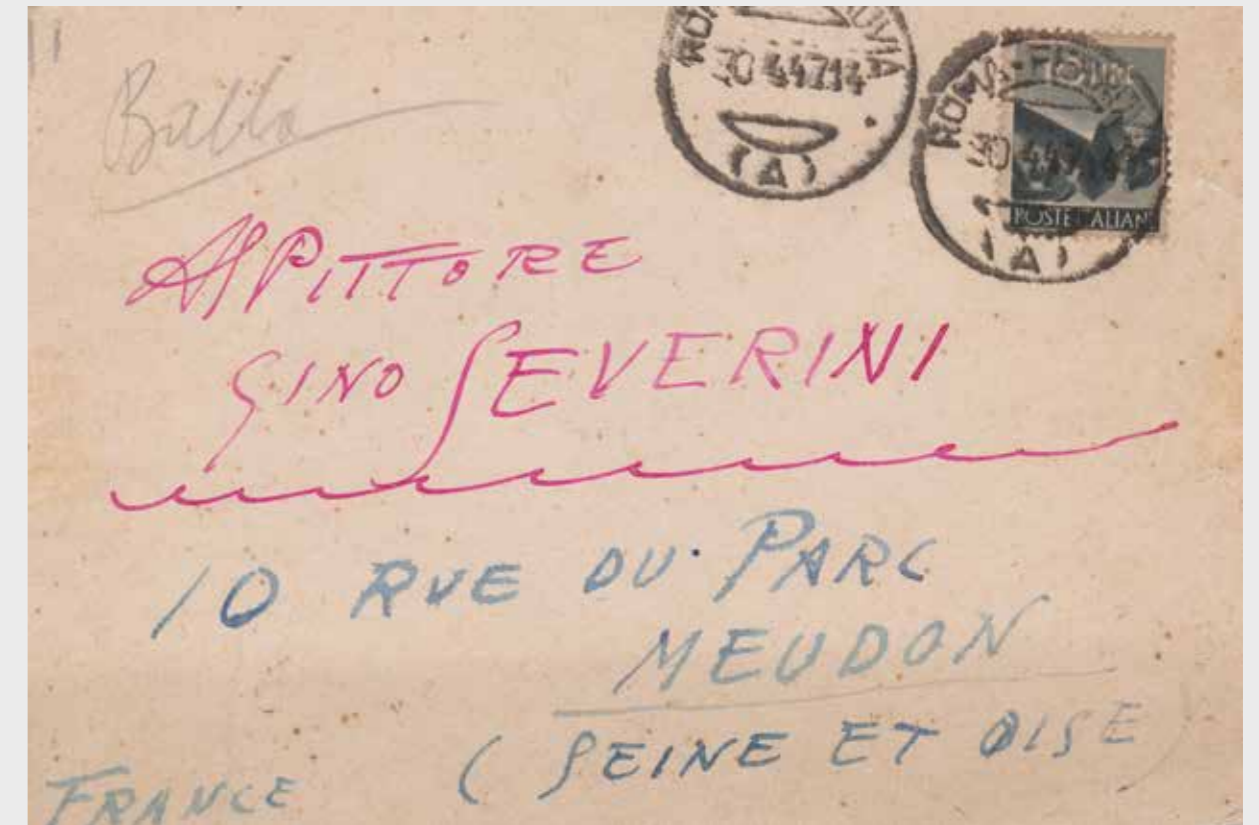 Balla
ROMA FERROVIA
30.4.47.14
(A)
ROMA-FERR
30.4.47
(A)
POSTE ITALIAN
Al PITTORE
GINO SEVERINI
10 RUE DU PARC
MEUDON
(SEINE ET OISE)
FRANCE